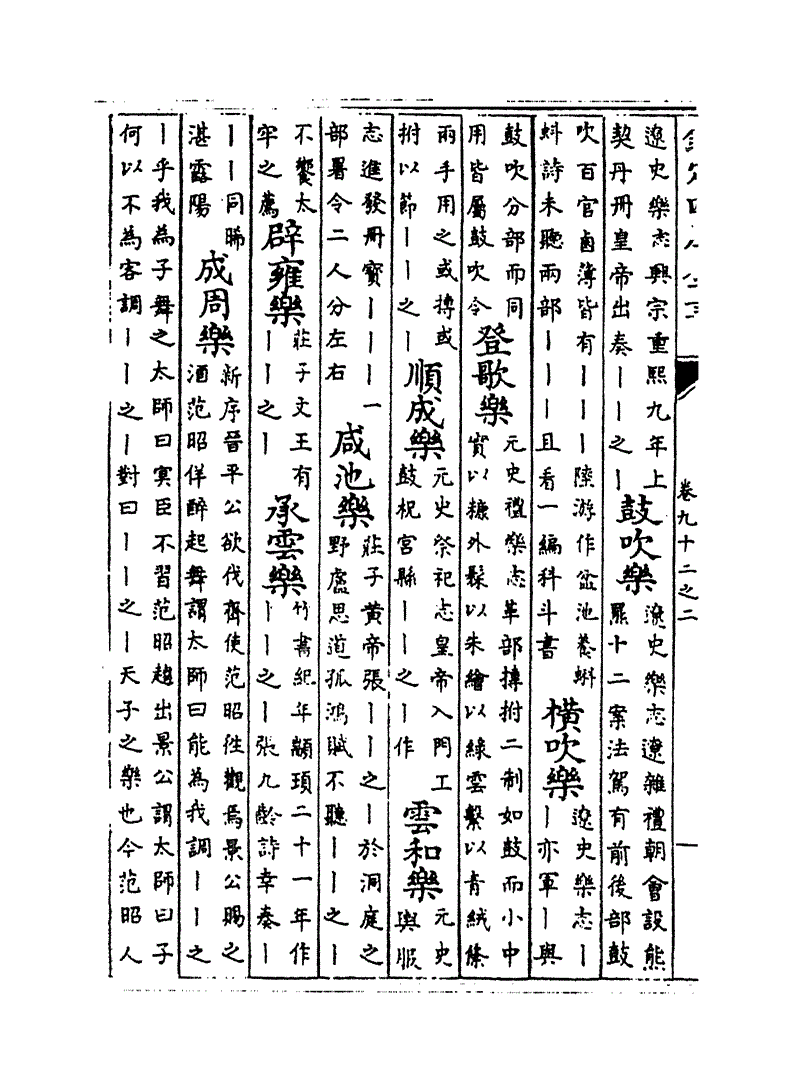 卷九十二之二
遼史樂志興宗重熙九年上
契丹冊皇帝出奏丨丨之丨
鼓吹樂
遼史樂志遼雜禮朝會設熊
羆十二案法駕有前後部鼓
吹百官鹵簿皆有丨丨丨陸游作盆池養蝌
蚪詩未聽兩部丨丨丨且看一編科斗書
橫吹樂
遼史樂志丨
丨亦軍丨與
鼓吹分部而同
用皆屬鼓吹令
登歌樂
元史禮樂志革部摶拊二制如鼓而小中
實以糠外髹以朱繪以綠雲繫以青絨絛
兩手用之或摶或
拊以節丨丨之丨
順成樂
元史祭祀志皇帝入門工
鼓柷宮縣丨丨之丨作
雲和樂
元史
輿服
志進發冊寶丨丨丨一
部署令二人分左右
咸池樂
莊子黄帝張丨丨之丨於洞庭之
野盧思道孤鴻賦不聽丨丨之丨
不饗太
牢之薦
辟雍樂
莊子文王有
丨丨之丨
承雲樂
竹書紀年顓頊二十一年作
丨丨之丨張九齡詩幸奏丨
丨丨同晞
湛露陽
成周樂
新序晉平公欲伐齊使范昭往觀焉景公賜之
酒范昭佯醉起舞謂太師曰能為我調丨丨之
丨乎我為子舞之太師曰冥臣不習范昭趨出景公謂太師曰子
何以不為客調丨丨之丨對曰丨丨之丨天子之樂也今范昭人